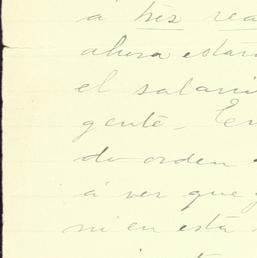 á tres rea
ahora estar
el salari
gente. Ten
do orden
á ver que
ni en esta